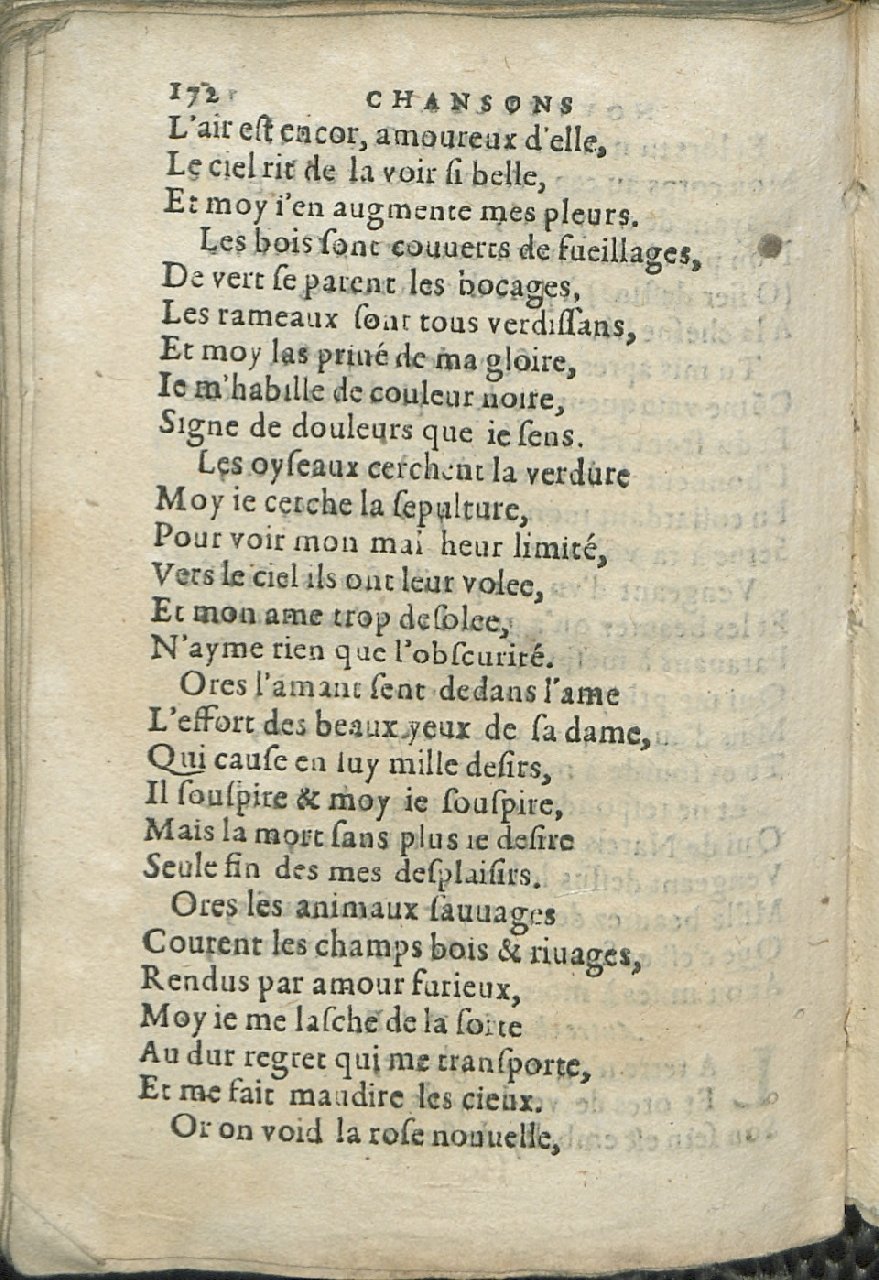 172 CHANSONS
L'air eſt encor, amoureux d'elle,
Le ciel rit de la voir ſi belle,
Et moy i'en augmente mes pleurs.
Les bois ſont couuerts de fueillages,
De vert ſe parent les bocages,
Les rameaux ſont tous verdiſſans,
Et moy las priué de ma gloire,
Ie m'habille de couleur noire,
Signe de douleurs que ie ſens.
Les oyſeaux cerchent la verdure
Moy ie cerche la ſepulture,
Pour voir mon mal heur limité,
Vers le ciel ils ont leur volee,
Et mon ame trop deſolee,
N'ayme rien que l'obſcurité.
Ores l'amant ſent dedans l'ame
L'effort des beaux yeux de ſa dame,
Qui cauſe en luy mille deſirs,
Il ſouſpire & moy ie ſouſpire,
Mais la mort ſans plus ie deſire
Seule fin des mes deſplaiſirs.
Ores les animaux ſauuages
Courent les champs bois & riuages,
Rendus par amour furieux,
Moy ie me laſche de la ſorte
Au dur regret qui me tranſporte,
Et me fait maudire les cieux.
Or on void la roſe nouuelle,